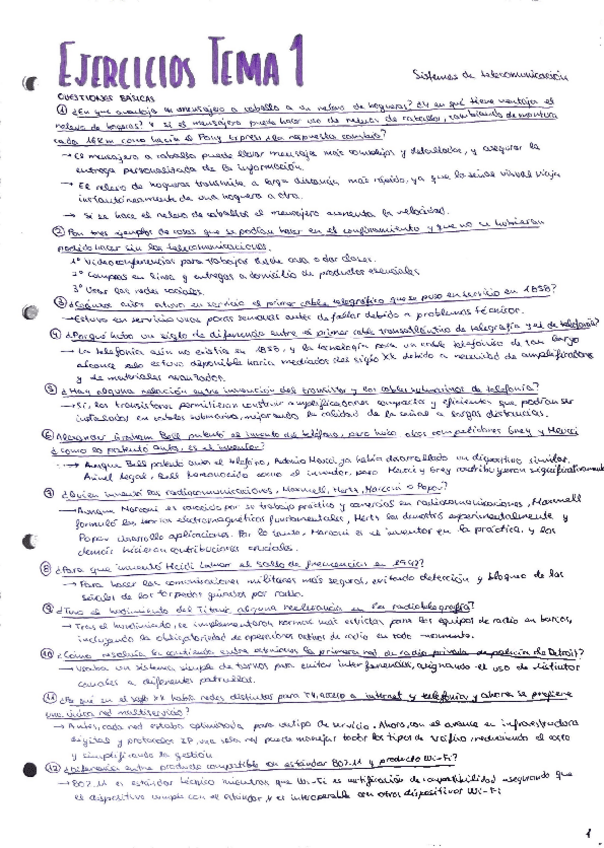 EJERCICIOS TEMA 1
Sistemas de telecomunicación
CUESTIONES BÁSICAS
① ¿En que aventaja un mensajero a caballo a un relevo de hogueras? ¿Y en qué tiene ventaja el
relevo de hogueras? Y si el mensajero puede hacer uso de relevos de caballos, cambiando de montura
cada 16km como hacía el Pony Express ¿la respuesta cambia?
→ El mensajero a caballo puede llevar mensajes más complejos y detallados, y asegurar la
entrega personalizada de la información.
→ El relevo de hogueras transmite a larga distancia más rápido, ya que la señal visual viaja
instantáneamente de una hoguera a otra.
→ Si se hace el relevo de caballos el mensajero aumenta la velocidad.
② Pon tres ejemplos de cosas que se podían hacer en el confinamiento y que no se hubieran
podido hacer sin las telecomunicaciones.
1º Videoconferencias para trabajar desde casa o dar clases.
2º Compras en línea y entregas a domicilio de productos esenciales
3º Usar las redes sociales.
③ ¿Cuántos años estuvo en servicio el primer cable telegráfico que se puso en servicio en 1858?
→ Estuvo en servicio unas pocas semanas antes de fallar debido a problemas técnicos.
④ ¿Porqué hubo un siglo de diferencia entre el primer cable transatlántico de telegrafía y el de telefonía?
→ La telefonía aún no existía en 1858, y la tecnología para un cable telefónico de tan largo
alcance solo estuvo disponible hacia mediados del siglo XX debido a necesidad de amplificadores
y de materiales avanzados.
⑤ ¿Hay alguna relación entre invención del transistor y los cables submarinos de telefonía?
→ Sí, los transistores permitieron construir amplificadores compactos y eficientes que podían ser
instalados en cables submarinos, mejorando la calidad de la señal a largas distancias.
⑥ Alexander Graham Bell patentó el invento del teléfono, pero hubo otros competidores Grey y Meucci
¿como lo patentó antes, es el inventor?
→ Aunque Bell patentó antes el teléfono, Antonio Meucci, ya había desarrollado un dispositivo similar.
A nivel legal, Bell es reconocido como el inventor, pero Meucci y Grey contribuyeron significativamente
⑦ ¿Quien inventó las radiocomunicaciones, Maxwell, Hertz, Marconi o Popov?
→ Aunque Marconi es conocido por su trabajo práctico y comercial en radiocomunicaciones, Maxwell
formuló las teorías electromagnéticas fundamentales, Hertz las demostró experimentalmente y
Popov desarrolló aplicaciones. Por lo tanto, Marconi es el inventor en la práctica, y los
demás hicieron contribuciones cruciales.
⑧ ¿Para que inventó Heidi Lamar el salto de frecuencias en 1942?
→ Para hacer las comunicaciones militares más seguras, evitando detección y bloqueo de las
señales de los torpedos guiados por radio.
⑨ ¿Tuvo el hundimiento del Titanic alguna repercusión en la radiotelegrafía?
→ Tras el hundimiento, se implementaron normas más estrictas para los equipos de radio en barcos,
incluyendo la obligatoriedad de operadores activos de radio en todo momento.
⑩ ¿Cómo resolvía la contienda entre estaciones la primera red de radio privada de policía de Detroit?
→ Usaba un sistema simple de turnos para evitar interferencias, asignando el uso de distintos
canales a diferentes patrullas.
⑪ ¿Por qué en el siglo XX había redes distintas para TV, acceso a internet y telefonía y ahora se prefiere
una única red multiservicio?
→ Antes, cada red estaba optimizada para un tipo de servicio. Ahora, con el avance en infraestructura
digital y protocolos IP, una sola red puede manejar todos los tipos de tráfico, reduciendo el coste
y simplificando la gestión
⑫ ¿Diferencia entre producto compatible con estándar 802.11 y producto Wi-Fi?
→ 802.11 es estándar técnico mientras que Wi-Fi es certificación de compatibilidad asegurando que
el dispositivo cumple con el estándar, y es interoperable con otros dispositivos Wi-Fi
1